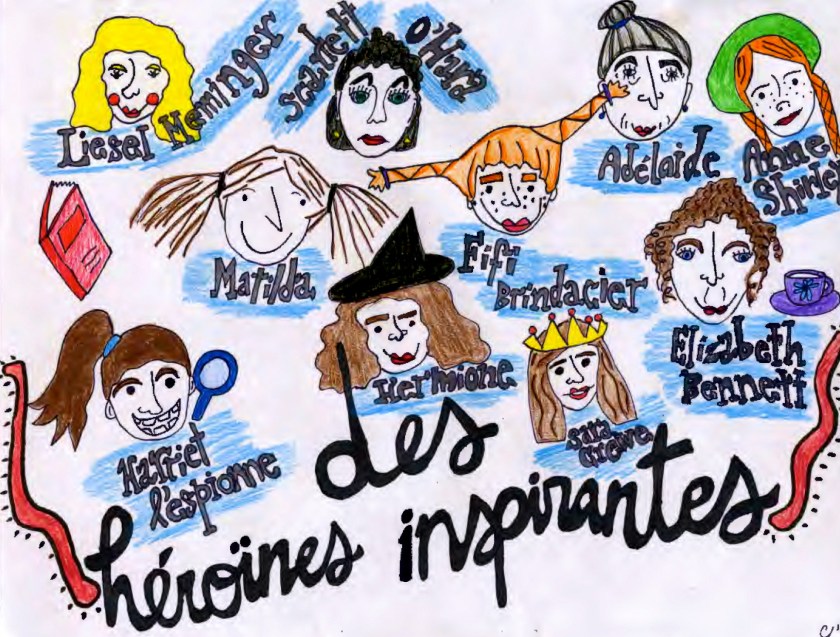 Liesel Meminger
Scarlett O'Hara
Adélaïde
Anne
Shirley
Matilda
Fifi
Brindacier
Hermione
Elizabeth
Bennett
Sara
Crewe
Harriet
l'espionne
des
héroïnes inspirantes